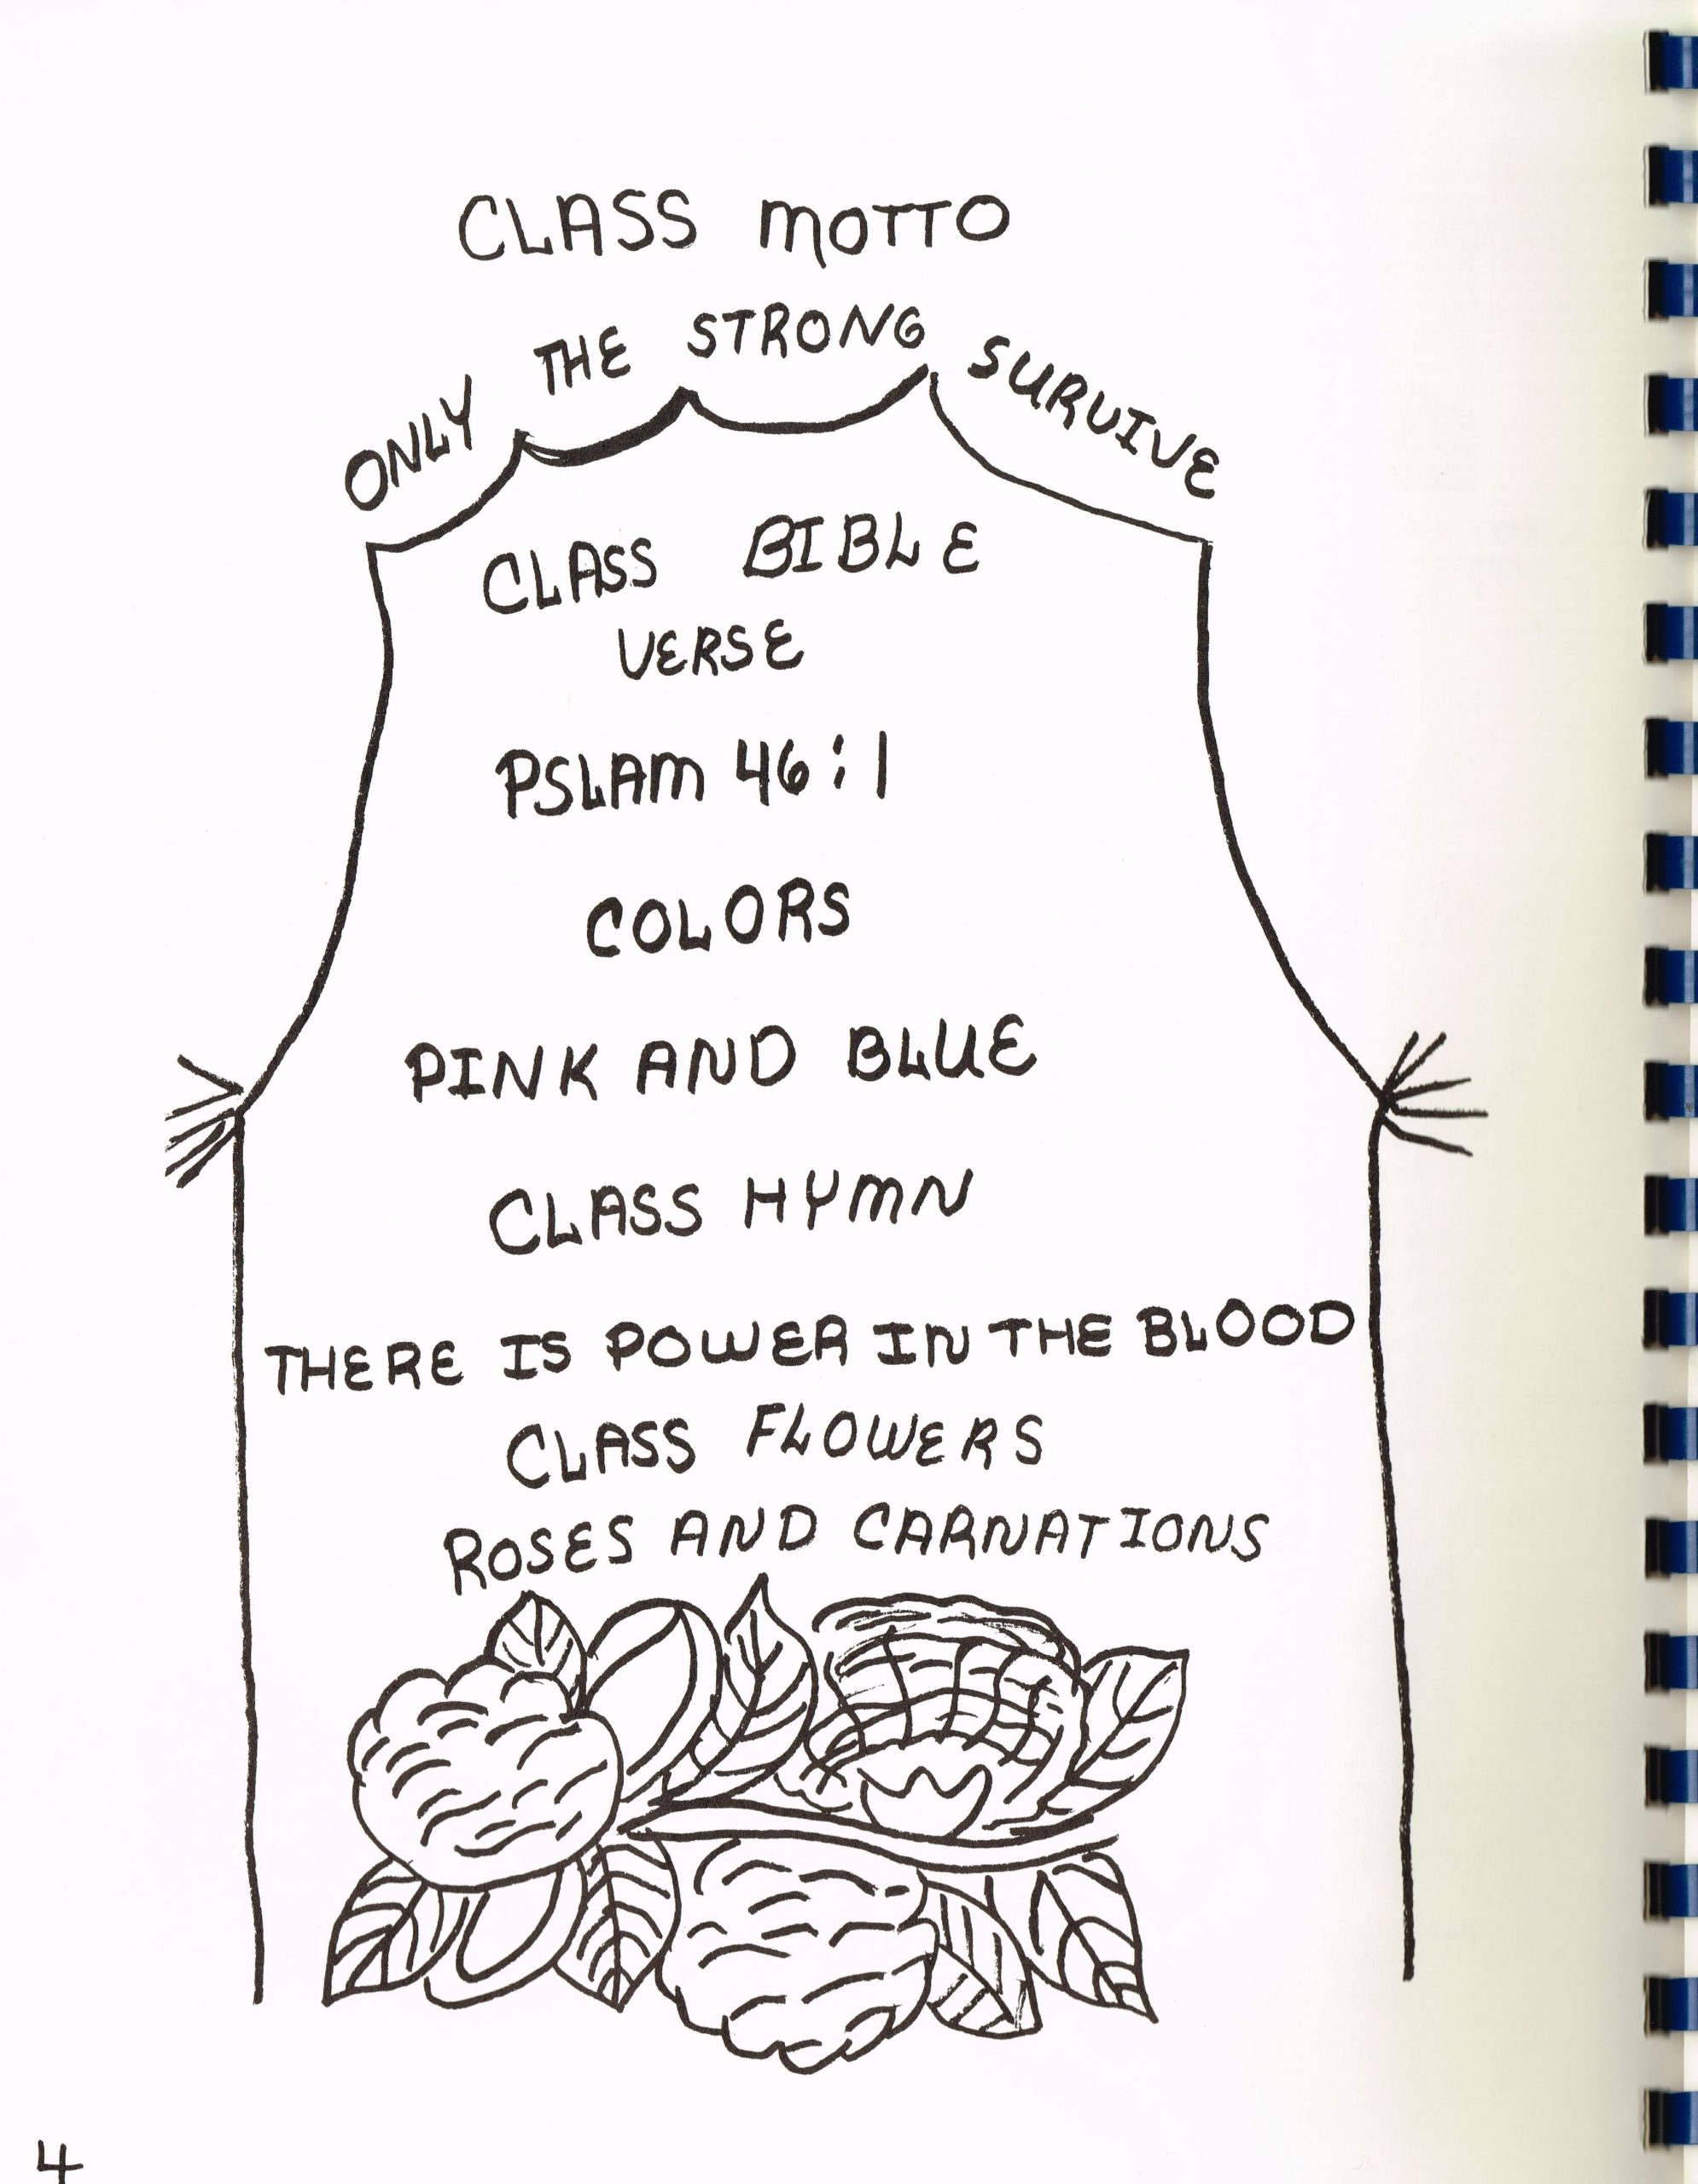 CLASS MOTTO
ONLY THE STRONG SURVIVE
CLASS BIBLE
VERSE
PSLAM 46:1
COLORS
PINK AND BLUE
CLASS HYMN
THERE IS POWER IN THE BLOOD
CLASS FLOWERS
ROSES AND CARNATIONS
4